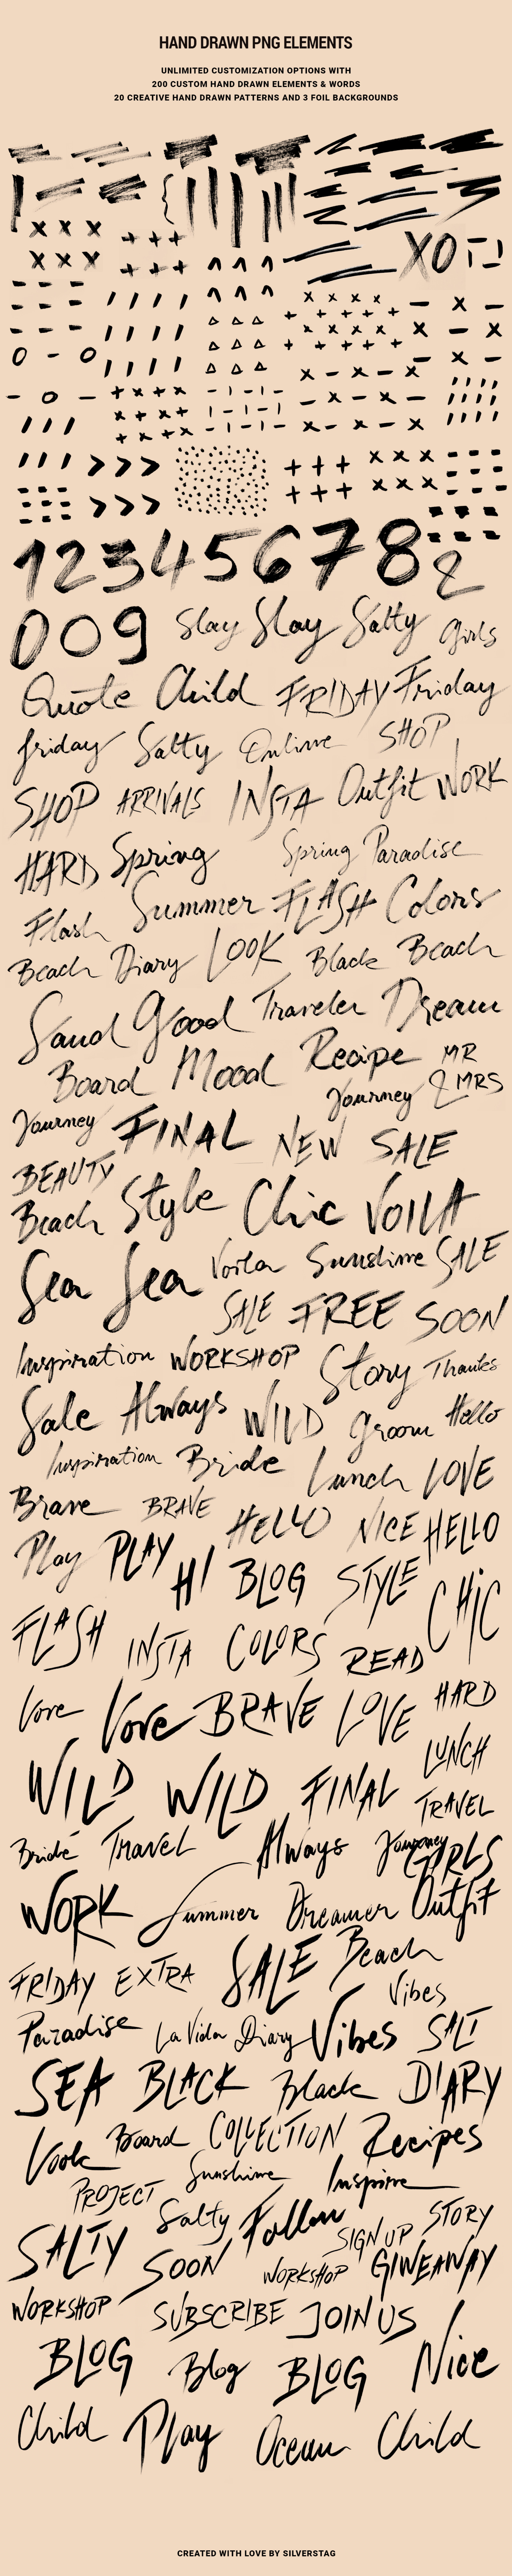 HAND DRAWN PNG ELEMENTS
UNLIMITED CUSTOMIZATION OPTIONS WITH
200 CUSTOM HAND DRAWN ELEMENTS & WORDS
20 CREATIVE HAND DRAWN PATTERNS AND 3 FOIL BACKGROUNDS
XO
1 2 3 4 5 6 7 8 &
0 0 9 Slay Slay Salty Girls
Quote Child FRIDAY Friday
friday Salty Online SHOP
SHOP ARRIVALS INSTA Outfit WORK
HARD Spring Spring Paradise
Flash Summer FLASH Colors
Beach Diary LOOK Black Beach
Sand Good Traveler Dream
Board Mood Recipe MR & MRS
Journey
Journey FINAL NEW SALE
BEAUTY
Beach Style Chic VOILA
Sea Sea Voila Sunshine SALE
SALE FREE SOON
Inspiration WORKSHOP Story Thanks
Sale Always WILD Groom Hello
Inspiration Bride Lunch LOVE
Brave BRAVE HELLO NICE HELLO
Play PLAY HI BLOG STYLE CHIC
FLASH INSTA COLORS READ
Love Love BRAVE LOVE HARD
LUNCH
WILD WILD FINAL TRAVEL
Bride Travel Always Journey GIRLS
WORK Summer Dreamer Outfit
FRIDAY EXTRA SALE Beach
Vibes
Paradise La Vida Diary Vibes SALT
SEA BLACK Black DIARY
Look Board COLLECTION Recipes
PROJECT Sunshine Inspire
SALTY Salty Follow SIGN UP STORY
SOON WORKSHOP GIVEAWAY
WORKSHOP SUBSCRIBE JOIN US
BLOG Blog BLOG Nice
Child Play Ocean Child
CREATED WITH LOVE BY SILVERSTAG